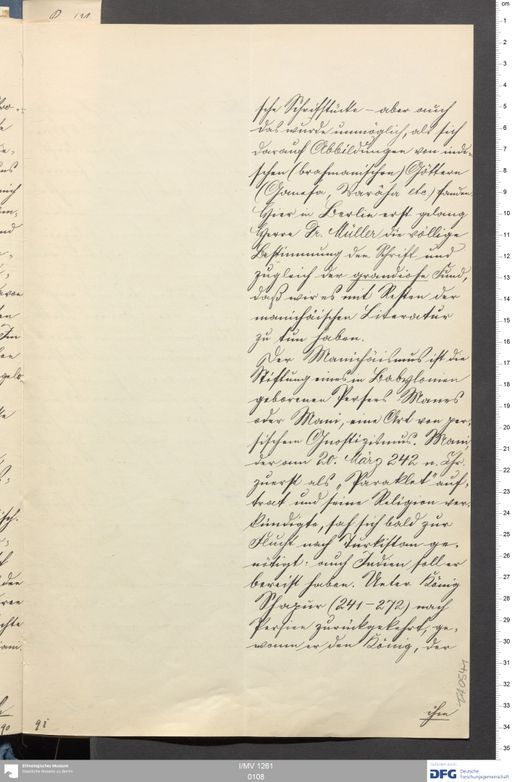 sche Schriftstücke – aber auch
das wurde unmöglich, als sich
darauf Abbildungen von indi-
schen (brahmanischen) Göttern
(Ganesa, Varâha etc) fanden.
Hier in Berlin erst gelang
Herrn Dr. Müller die völlige
Bestimmung der Schrift und
zugleich der grandiose Fund,
daß wir es mit Resten der
manichäischen Literatur
zu tun haben.
Der Manichäismus ist die
Stiftung eines in Babylonien
geborenen Persers Manes
oder Mani, eine Art von per-
sischem Gnostizismus. Mani,
der am 20. März 242 n. Chr.
zuerst als „Paraklet“ auf-
trat und seine Religion ver-
kündigte, sah sich bald zur
Flucht nach Turkistan ge-
nötigt; auch Indien soll er
bereist haben. Unter König
Shapur (241–272) nach
Persien zurückgekehrt, ge-
wann er den König, der
ihm
91
I/MV 1261
0108
Ethnologisches Museum
Staatliche Museen zu Berlin
DFG Deutsche
Forschungsgemeinschaft